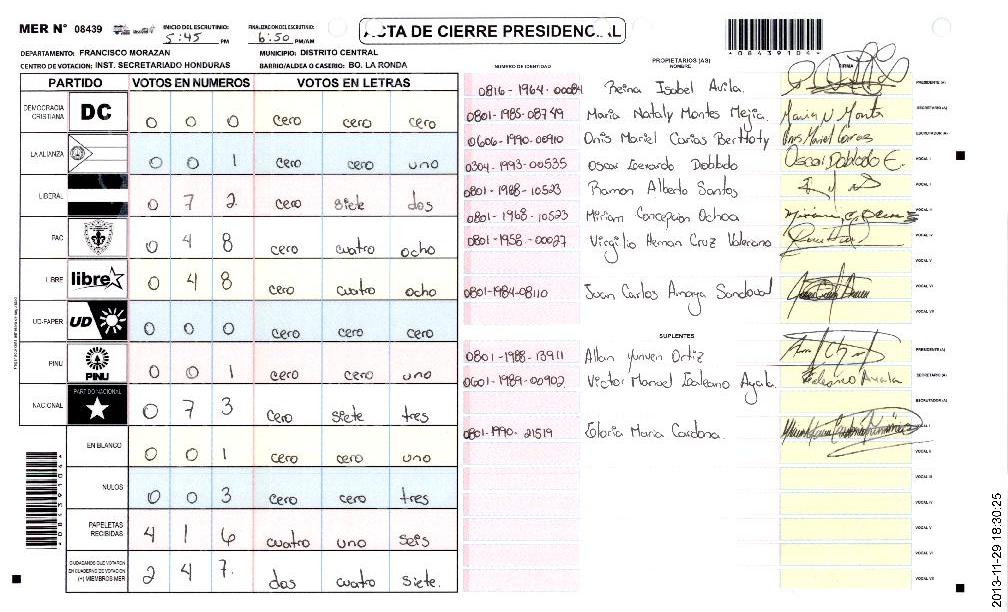 MER N° 08439
INICIO DEL ESCRUTINIO:
5:45 PM
FINALIZACION DEL ESCRUTINIO:
6:50 PM/AM
ACTA DE CIERRE PRESIDENCIAL
*08439104*
DEPARTAMENTO: FRANCISCO MORAZAN
MUNICIPIO: DISTRITO CENTRAL
CENTRO DE VOTACION: INST. SECRETARIADO HONDURAS
BARRIO/ALDEA O CASERIO: BO. LA RONDA
PARTIDO VOTOS EN NUMEROS VOTOS EN LETRAS
DEMOCRACIA CRISTIANA DC 0 0 0 cero cero cero
LA ALIANZA 0 0 1 cero cero uno
LIBERAL 0 7 2 cero siete dos
PAC 0 4 8 cero cuatro ocho
LIBRE libre 0 4 8 cero cuatro ocho
UD-FAPER UD 0 0 0 cero cero cero
PINU PINU 0 0 1 cero cero uno
NACIONAL PARTIDO NACIONAL 0 7 3 cero siete tres
EN BLANCO 0 0 1 cero cero uno
NULOS 0 0 3 cero cero tres
PAPELETAS RECIBIDAS 4 1 6 cuatro uno seis
CIUDADANOS QUE VOTARON EN CUADERNO DE VOTACION (+) MIEMBROS MER 2 4 7. dos cuatro siete.
NUMERO DE IDENTIDAD
PROPIETARIOS (AS)
NOMBRE
FIRMA
0816-1964-00084 Reina Isabel Avila. PRESIDENTE (A)
0801-1985-08749 Maria Nataly Montes Mejia. Maria N Montes SECRETARIO (A)
0606-1990-00910 Onis Mariel Carias Berthoty Onis Mariel Carias ESCRUTADOR (A)
0304-1993-00535 Oscar Everardo Doblado Oscar Doblado E. VOCAL I
0801-1988-10523 Ramon Alberto Santos VOCAL II
0801-1968-10523 Miriam Concepcion Ochoa VOCAL III
0801-1958-00027 Virgilio Hernan Cruz Valerano VOCAL IV
VOCAL V
0801-1984-08110 Juan Carlos Amaya Sandoval VOCAL VI
VOCAL VII
SUPLENTES
0801-1988-13911 Allan Yunven Ortiz PRESIDENTE (A)
0601-1989-00902 Victor Manuel Galeano Ayala. Galeano Ayala SECRETARIO (A)
ESCRUTADOR (A)
0801-1990-21519 Gloria Maria Cardona. VOCAL I
VOCAL II
VOCAL III
VOCAL IV
VOCAL V
VOCAL VI
VOCAL VII
*08439104*
2013-11-29 18:30:25